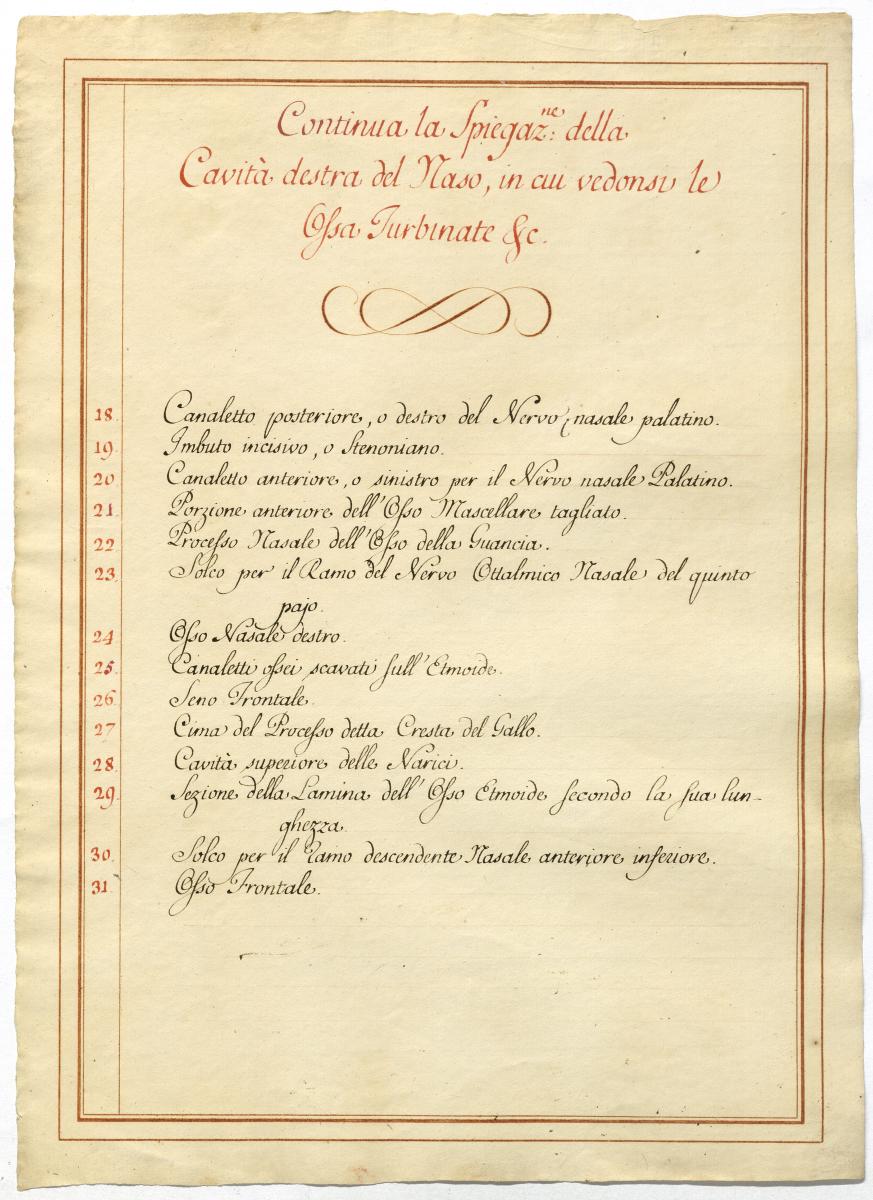 Continua la Spiegaz.ne della
Cavità destra del Naso, in cui vedonsi le
Ossa Turbinate &c.
18. Canaletto posteriore, o destro del Nervo nasale palatino.
19. Imbuto incisivo, o Stenoniano.
20 Canaletto anteriore, o sinistro per il Nervo nasale Palatino.
21. Porzione anteriore dell'Osso Mascellare tagliato.
22 Processo Nasale dell'Osso della Guancia.
23. Solco per il Ramo del Nervo Ottalmico Nasale del quinto
pajo.
24 Osso Nasale destro.
25. Canaletti ossei scavati sull'Etmoide.
26. Seno Frontale.
27 Cima del Processo detta Cresta del Gallo.
28. Cavità superiore delle Narici.
29. Sezione della Lamina dell'Osso Etmoide secondo la sua lun-
ghezza.
30. Solco per il Ramo descendente Nasale anteriore inferiore.
31. Osso Frontale.